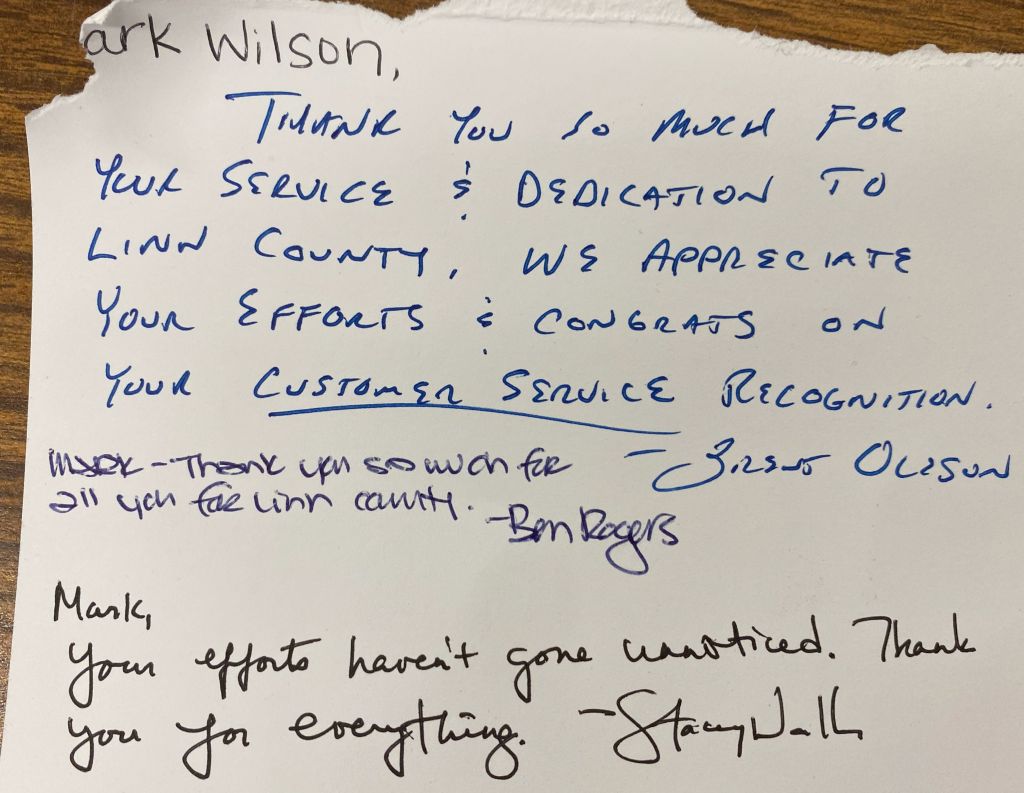 ark Wilson,
THANK YOU SO MUCH FOR
YOUR SERVICE & DEDICATION TO
LINN COUNTY, WE APPRECIATE
YOUR EFFORTS & CONGRATS ON
YOUR CUSTOMER SERVICE RECOGNITION.
- BRENT OLESON
MARK - Thank you so much for
all you for Linn County.
- Ben Rogers
Mark,
Your efforts haven't gone unnoticed. Thank
you for everything. - Stacey Walk